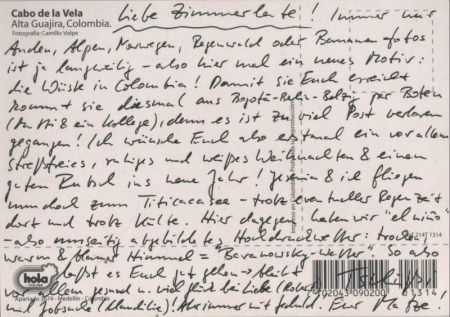 Cabo de la Vela
Alta Guajira, Colombia.
Fotografía: Camillo Volpe
Liebe Zimmerleute! Immer nur
Anden, Alpen, Norwegen, Regenwald oder Bananenfotos
ist ja langweilig – also hier mal ein neues Motiv:
die Wüste in Colombia! Damit sie Euch erreicht
kommt sie diesmal aus Bogotá-Berlin-Belzig per Boten
ein Kollege), denn es ist zu viel Post verloren
gegangen! Ich wünsche Euch also erstmal ein vor allem
streßfreies, ruhiges und weißes Weihnachten & einen
guten Rutsch ins neue Jahr! & ich fliegen
nun doch zum Titicacasee – trotz eventueller Regenzeit
dort und trotz Kälte. Hier dagegen haben wir "el niño"
– also umseitig abgebildetes wetter: trocken,
warm & blauer Himmel = So also
laßt es Euch gut gehen – bleibt
vor allem gesund u. viel Glück bei Liebe
und Jobsuche (Klaudilie)! Aber immer mit Geduld. Eur
hola
COLINA
Apartado 3674 - Medellín - Colombia
01314